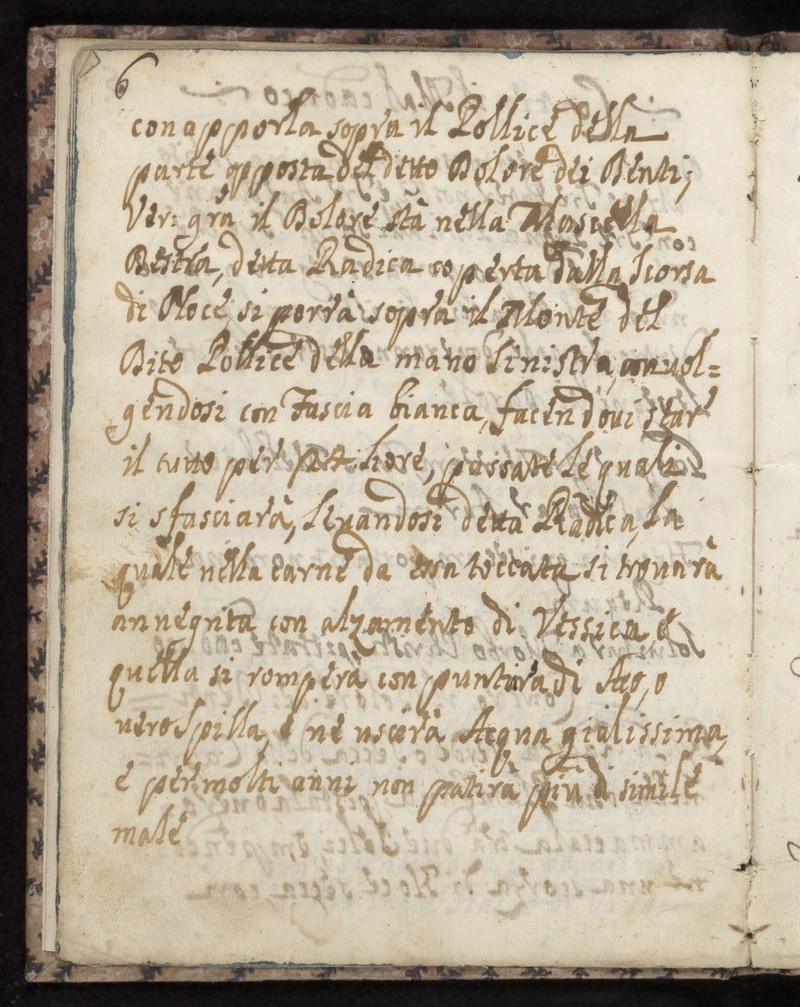 6
con apporla sopra il Pollice della
parte opposta del detto Dolore dei Denti;
Ver: grã il Dolore stà nella Mascella
Destra, detta Radica coperta dalla Scorsa
di Noce si porrà sopra il Monte del
Dito Pollice della mano Sinistra, con uol=
gendosi con Fascia bianca, facendoui star
il tutto per 24 hore, passate le quali
si sfasciarà, leuandosi detta Radica, la
quale nella carne da essa toccata si trouarà
annegrita con alzamento di Vessica e
quella si romperà con puntura di Ago, o
uero Spilla, e ne uscirà Acqua gialissima,
e per molti anni non patirà più di simile
male